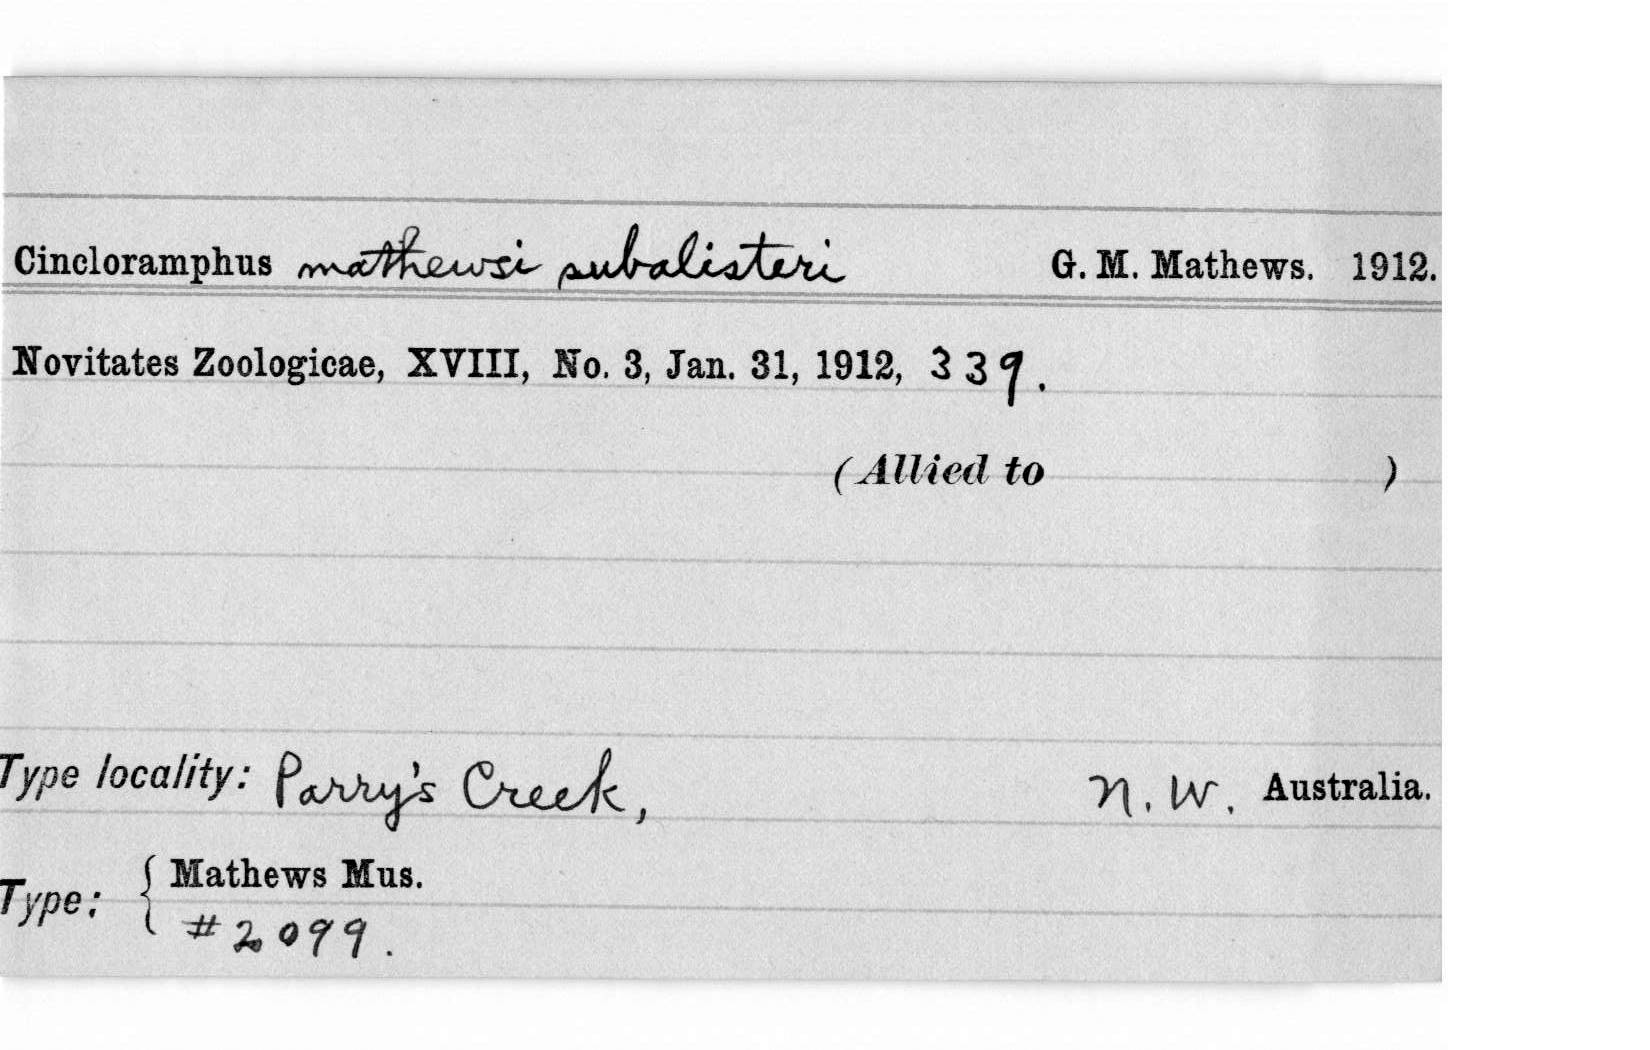 Cincloramphus mathewsi subalisteri G. M. Mathews. 1912.
Novitates Zoologicae, XVIII, No. 3, Jan. 31, 1912, 339.
(Allied to )
Type locality: Parry's Creek, N. W. Australia.
Type: { Mathews Mus.
#2099.